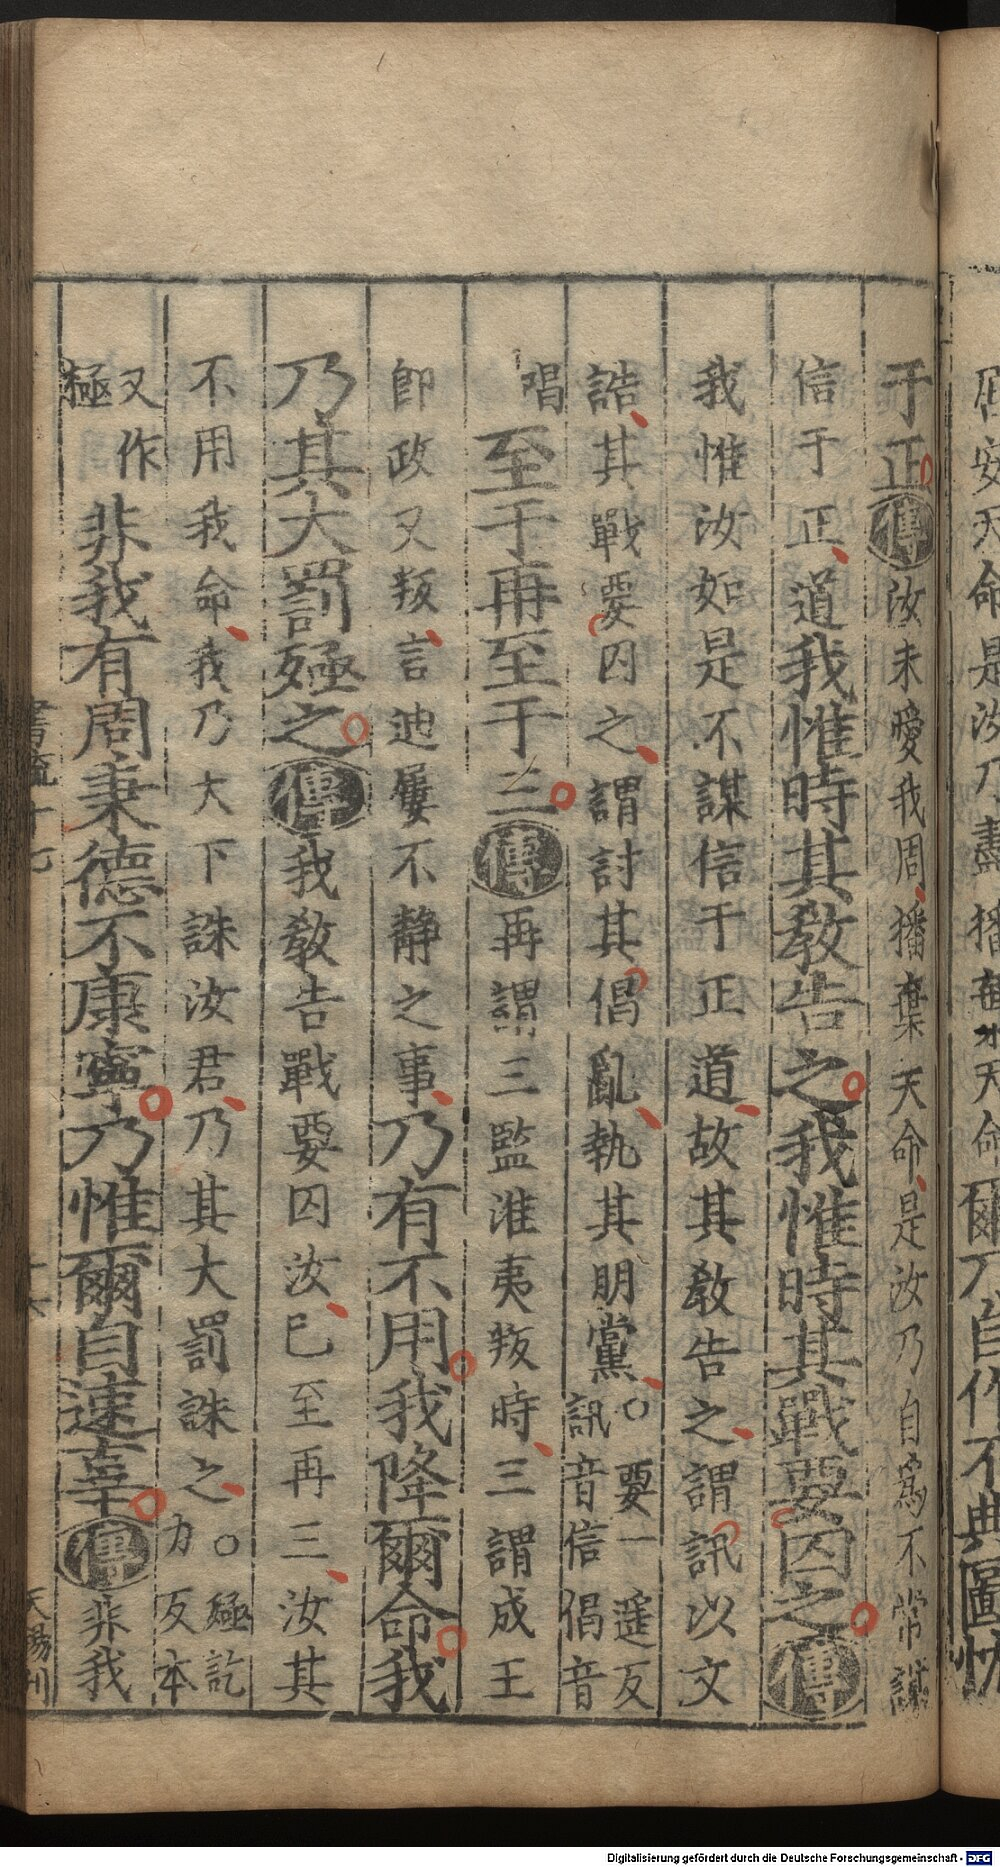 居安天命是汝乃盡播棄天命爾乃自作不典圖忱
于正傳汝未愛我周播棄天命是汝乃自爲不常謀
信于正道我惟時其教告之我惟時其戰要囚之傳
我惟汝如是不謀信于正道故其教告之謂訊以文
誥其戰要囚之謂討其倡亂執其朋黨○要一遥反訊音信倡音
唱至于再至于三傳再謂三監淮夷叛時三謂成王
卽政又叛言迪屢不静之事乃有不用我降爾命我
乃其大罰殛之傳我教告戰要囚汝已至再三汝其
不用我命我乃大下誅汝君乃其大罰誅之○殛訖力反本
又作極非我有周秉德不康寧乃惟爾自速辜傳非我
書疏十七
十六
Digitalisierung gefördert durch die Deutsche Forschungsgemeinschaft - DFG